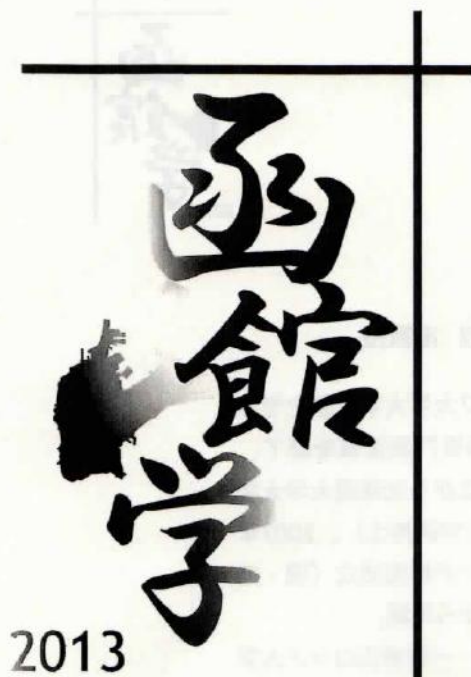 函館学
2013